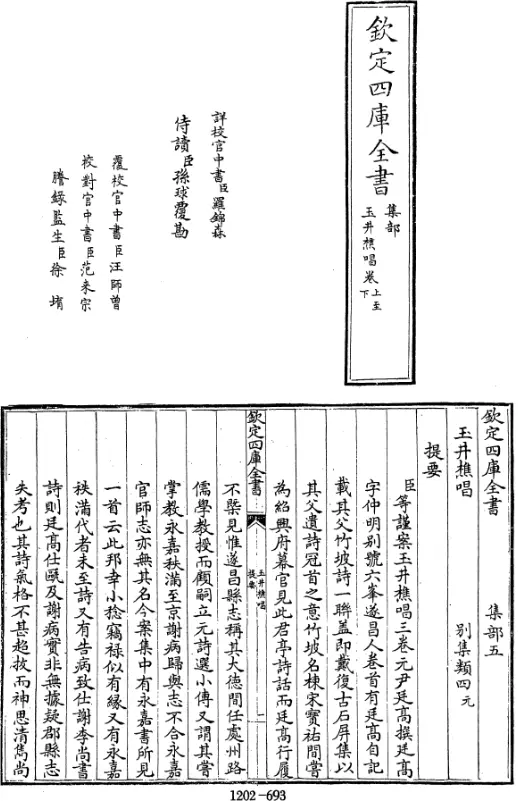 欽定四庫全書
集部
玉井樵唱卷上至下
詳校官中書臣羅錦森
侍讀臣孫球覆勘
覆校官中書臣汪師曾
校對官中書臣范來宗
謄錄監生臣徐堉
欽定四庫全書 集部五
玉井樵唱 別集類四 元
提要
臣等謹案玉井樵唱三卷元尹廷高撰廷高
字仲明别號六峯遂昌人卷首有廷高自記
載其父竹坡詩一聯蓋即戴復古石屏集以
其父遺詩冠首之意竹坡名棟宋寳祐間嘗
為紹興府幕官見此君亭詩話而廷高行履
欽定四庫全書
玉井樵唱
提要
一
不槩見惟遂昌縣志稱其大德間任處州路
儒學教授而顧嗣立元詩選小傳又謂其嘗
掌教永嘉秩滿至京謝病歸與志不合永嘉
官師志亦無其名今案集中有永嘉書所見
一首云此邦幸小稔竊禄似有縁又有永嘉
秩滿代者未至詩又有告病致仕謝李尚書
詩則廷高仕甌及謝病實非無據疑郡縣志
失考也其詩氣格不甚超拔而神思清雋尚
1202-693